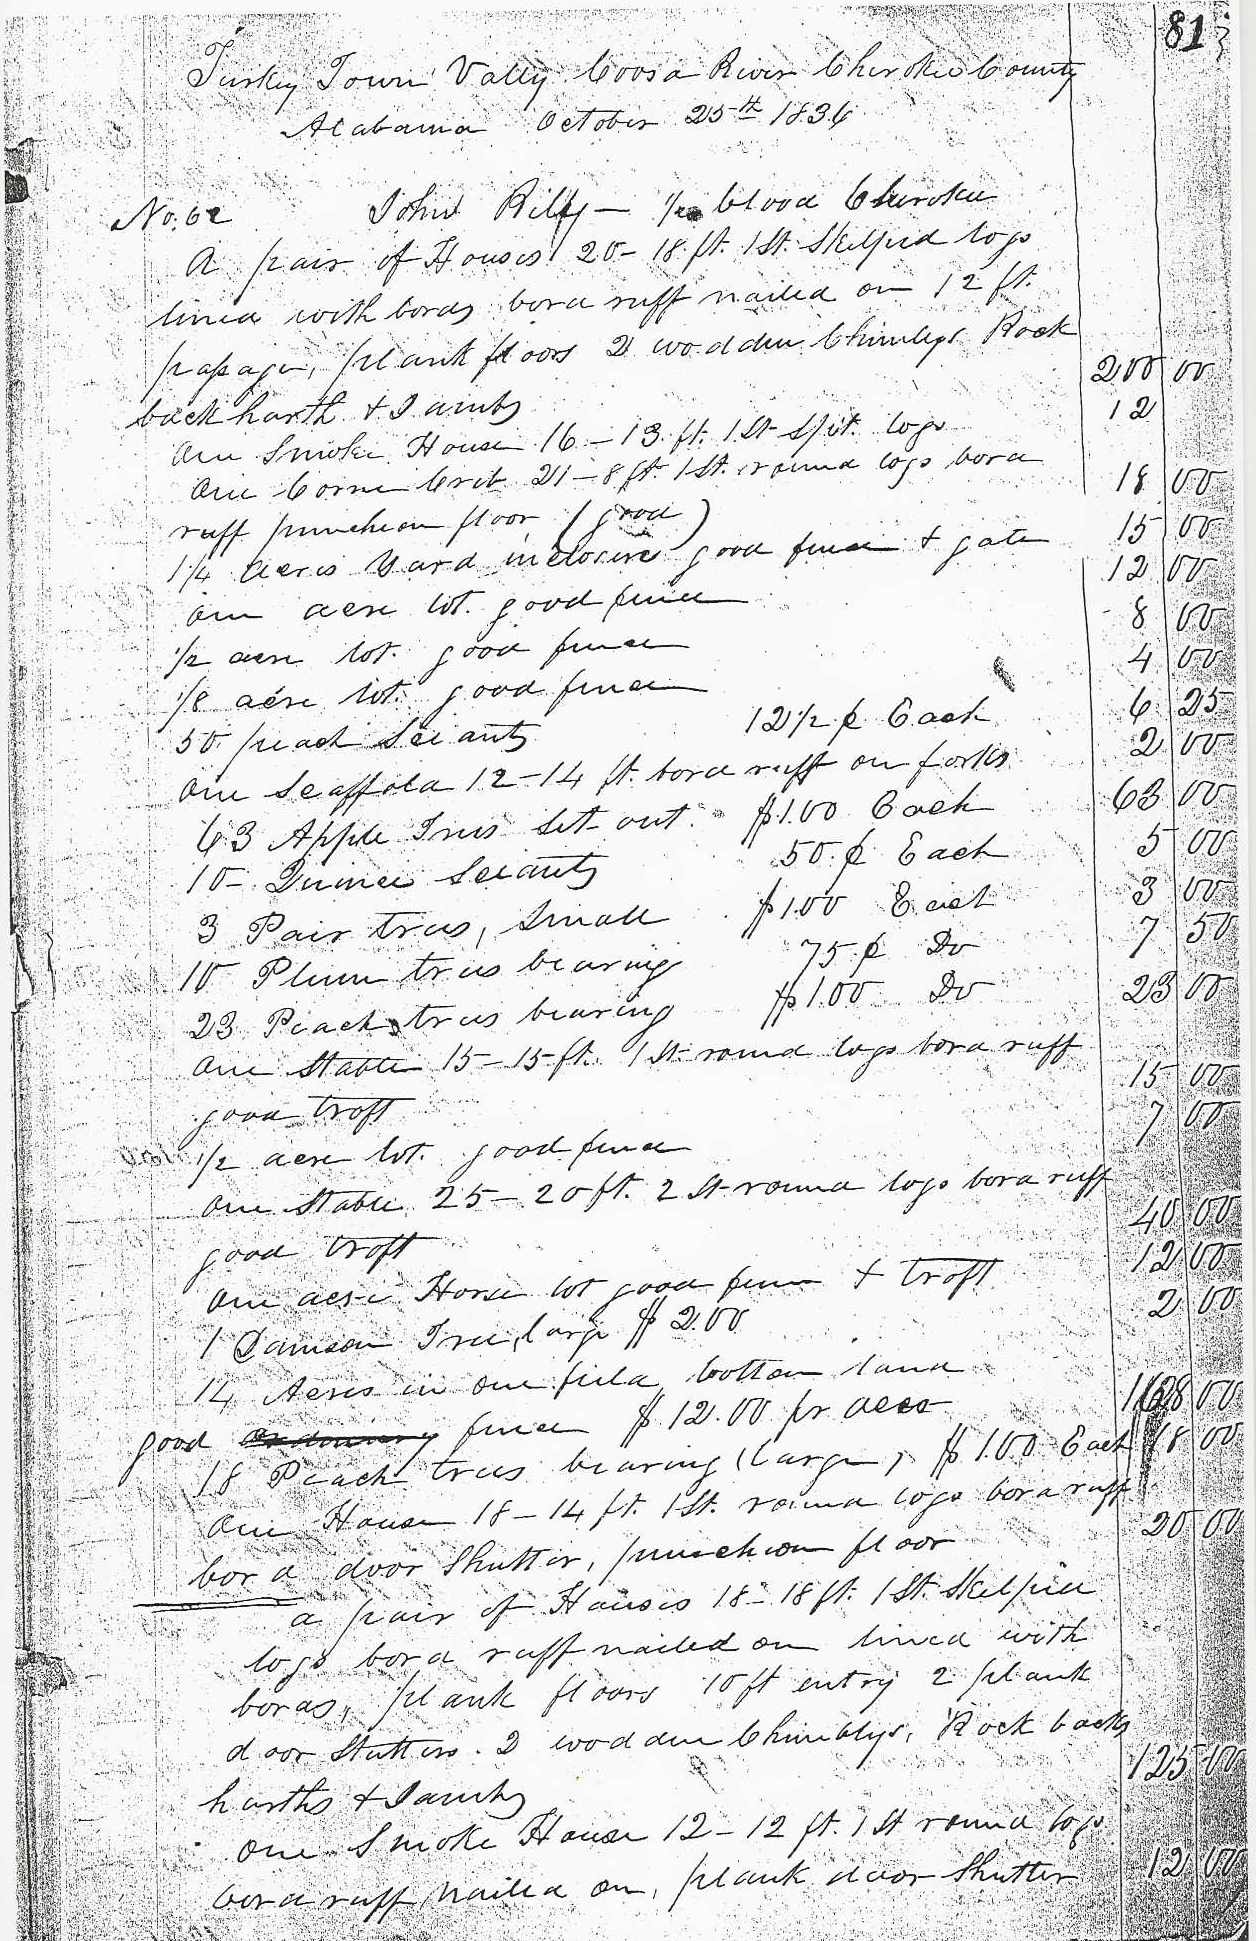 81
Turkey Town Vally Coosa River Cherokee County
Alabama October 25th 1836
No. 62 John Rily — 1/2 blood Cherokee
A pair of Houses 20 – 18 ft. 1 St. Skelped logs
lined with bords bord ruff nailed on 12 ft.
passage, plank floors 2 wodden Chimleys Rock
back harth & Jambs 200 00
One Smoke House 16 – 13 ft. 1 St split logs 12
One Corn Crib 21 – 8 ft. 1 St. round logs bord
ruff puncheon floor (good) 18 00
1 1/4 acres Yard inclosure good fence & gate 15 00
One acre lot. good fence 12 00
1/2 acre lot. good fence 8 00
1/8 acre lot. good fence 4 00
50 peach Scients 12 1/2 ¢ Each 6 25
One Scaffold 12 – 14 ft. bord ruff on forks 2 00
63 Apple Trees Set out. $1.00 Each 63 00
10 – Quince Scients 50 ¢ Each 5 00
3 Pair trees, Small $1.00 Each 3 00
10 Plum trees bearing 75 ¢ Do 7 50
23 Peach trees bearing $1.00 Do 23 00
One Stable 15 – 15 ft. 1 St round logs bord ruff
good troft 15 00
1/2 acre lot. good fence 7 00
One Stable 25 – 20 ft. 2 St round logs bord ruff
good troft 40 00
One acre Horse lot good fence & troft 12 00
1 Damson Tree, large $2.00 2 00
14 Acres in one field bottom land
good fence $12.00 pr acre 168 00
18 Peach trees bearing (large) $1.00 Each 18 00
One House 18 – 14 ft. 1 St. round logs bord ruff
bord door Shutter, puncheon floor 20 00
a pair of Houses 18 – 18 ft. 1 St. Skelped
logs bord ruff nailed on lined with
bords, plank floors 10 ft entry 2 plank
door Shutters. 2 wodden Chimblys, Rock backs
harths & Jambs 125 00
One Smoke House 12 – 12 ft. 1 St round logs
bord ruff nailed on, plank door Shutter 12 00